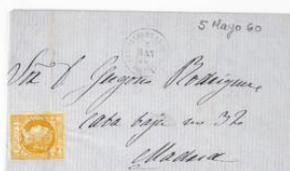 5 Mayo 60
MAY
Sor D. Gregorio Rodriguez
Caba baja no 32
Madrid